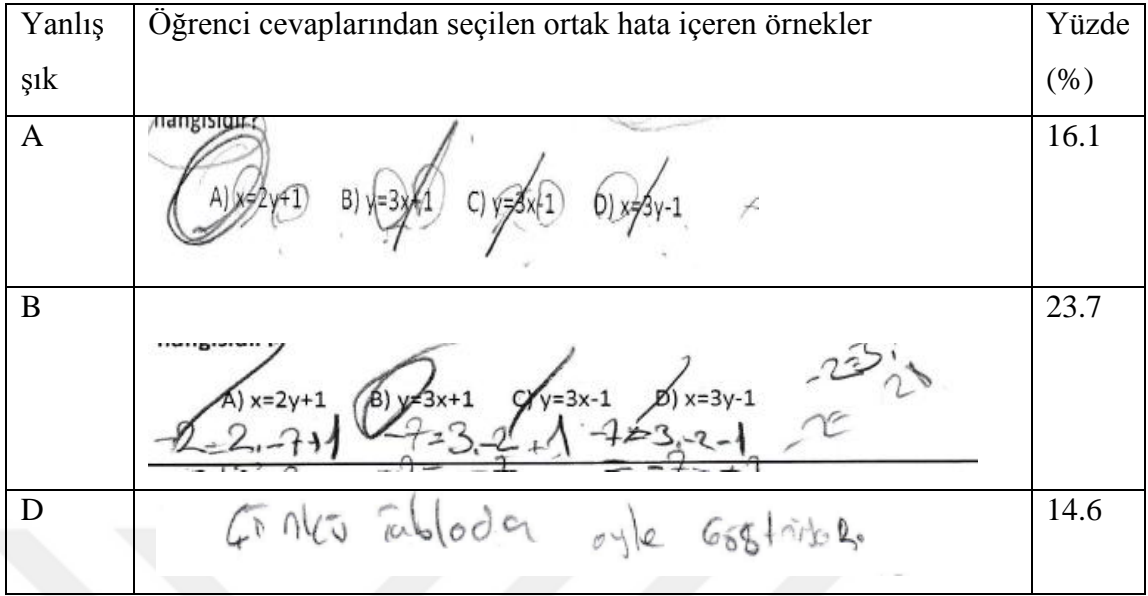 Yanlış Öğrenci cevaplarından seçilen ortak hata içeren örnekler Yüzde
şık (%)
A 16.1
hangisidir?
A) x=2y+1 B) y=3x+1 C) y=3x-1 D) x=3y-1
B 23.7
hangisidir?
A) x=2y+1 B) y=3x+1 C) y=3x-1 D) x=3y-1
-2=2.-7+1 -7=3.-2+1 -7≠3.-2-1
D 14.6
Çünkü tabloda öyle